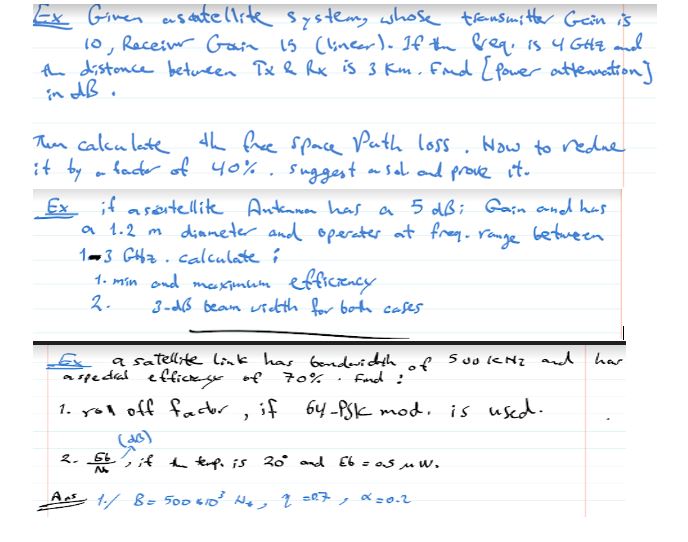 Ex Given a satellite system, whose transmitter Gain is
10, Receiver Gain 15 (linear). If the freq. is 4 GHz and
the distance between Tx & Rx is 3 Km. Find [Power attenuation]
in dB.
Then calculate the free space Path loss. How to reduce
it by a factor of 40%. suggest a sol and prove it.
Ex if a satellite Antenna has a 5 dBi Gain and has
a 1.2 m diameter and operates at freq. range between
1-3 GHz. calculate :
1. min and maximum efficiency
2. 3-dB beam width for both cases
Ex a satellite link has bandwidth of 500 KHz and has
a spectral efficiency of 70%. Find :
1. roll off factor, if 64-PSK mod. is used.
(dB)
2. Eb/No, if the temp. is 20° and Eb = 0.5 μW.
Ans 1./ B = 500 x 10³ Hz, η = 0.7, α = 0.2